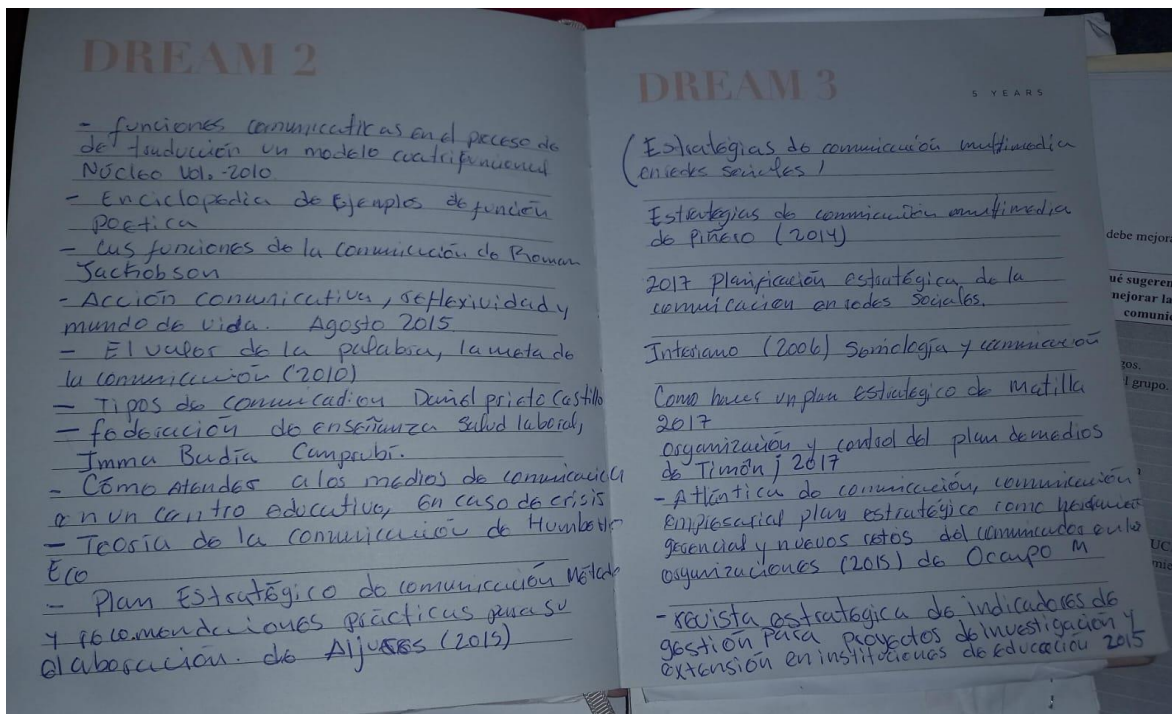 DREAM 2
- funciones comunicaticas en el proceso de
de traducción un modelo cuatrifuncional
Núcleo Vol. -2010
- Enciclopedia de Ejemplos de función
poetica
- Las funciones de la comunicación de Roman
Jackobson
- Acción comunicativa, reflexividad y
mundo de vida. Agosto 2015
- El valor de la palabra, la meta de
la comunicación (2010)
- Tipos de comunicadion Daniel prieto Castillo
- federación de enseñanza salud laboral,
Imma Badia Camprubí.
- Cómo Atender a los medios de comunicación
en un centro educativo, en caso de crisis
- Teoría de la comunicación de Humberto
Eco
- Plan Estratégico de comunicación Método
y recomendaciones prácticas para su
elaboración. de Aljures (2015)
DREAM 3
5 YEARS
(Estratégias de comunicación multimedia
en redes sociales)
Estrategias de comunicación multimedia
de Piñero (2014)
2017 Planificación estratégica de la
comunicación en redes sociales.
Interiano (2006) Semiología y comunicación
Como hacer un plan estratégico de Matilla
2017
organización y control del plan de medios
de Timón j 2017
- Atlántica de comunicación, comunicación
empresarial plan estratégico como herramient
gerencial y nuevos retos del comunicador en las
organizaciones (2015) de Ocampo M
- revista estratégica de indicadores de
gestión para proyectos de investigación y
extensión en instituciones de educación 2015
debe mejora
ué sugeren
mejorar la
comunic
gos.
l grupo.
UC